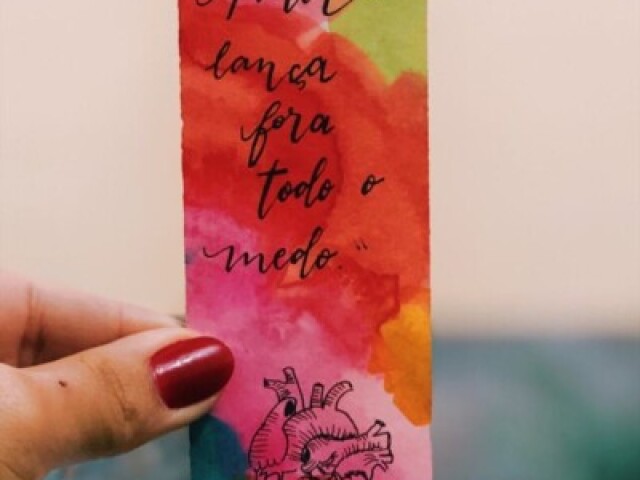 lança
fora
todo o
medo."